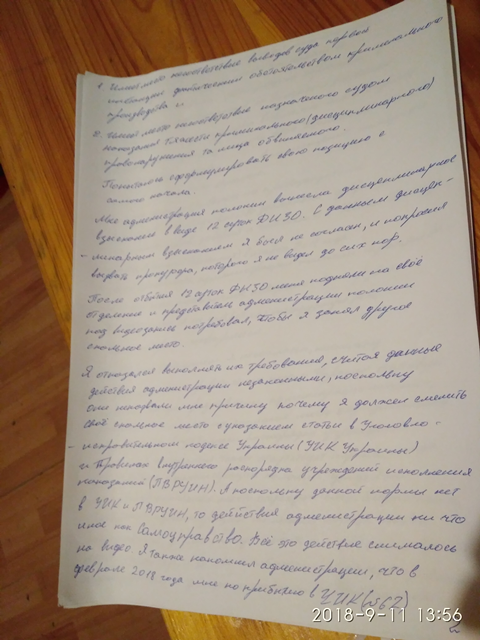 1. Имеет место несоответствие выводов суда первой
инстанции фактическим обстоятельствам криминального
производства и
2. имеет место несоответствие назначенного судом
наказания тяжести криминального (дисциплинарного)
правонарушения та лица обвиняемого.
Попытаюсь сформулировать свою позицию с
самого начала.
Мне администрация колонии вынесла дисциплинарное
взыскание в виде 12 суток ДИЗО. С данным дисцип-
- линарным взысканием я был не согласен, и попросил
вызвать прокурора, которого я не видел до сих пор.
После отбытия 12 суток ДИЗО меня подняли на своё
отделение и представитель администрации колонии
под видеозапись потребовал, чтобы я занял другое
спальное место.
Я отказался выполнять их требования, считая данные
действия администрации незаконными, поскольку
они не назвали мне причину почему я должен сменить
своё спальное место с указанием статьи в Уголовно-
- исправительном кодексе Украины (УИК Украины)
и Правилах внутреннего распорядка учреждений исполнения
наказаний (ПВРУИН). А поскольку данной нормы нет
в УИК и ПВРУИН, то действия администрации ни что
иное как Самоуправство. Всё это действие снималось
на видео Я также напомнил администрации, что в
феврале 2018 года мне по прибытию в УИК (№67)
2018-9-11 13:56
2